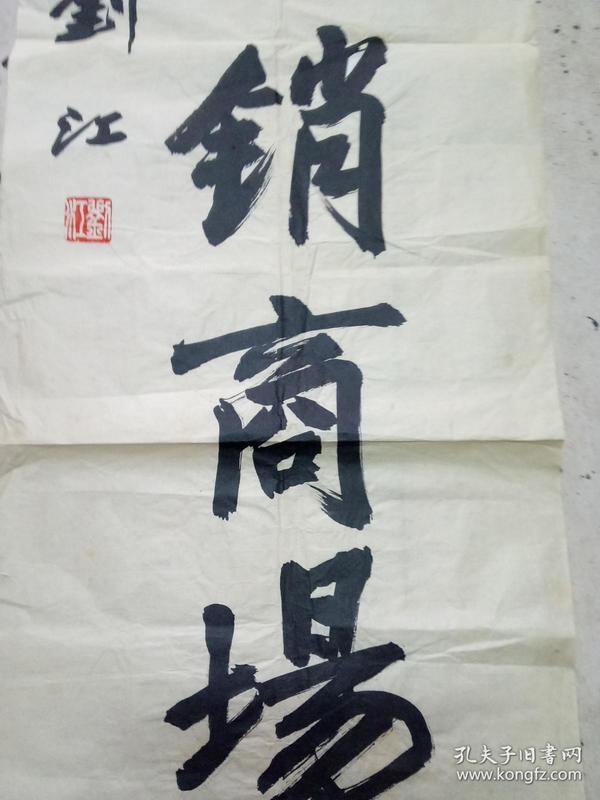 銷商場
劉江
劉江
孔夫子旧書网
www.kongfz.com